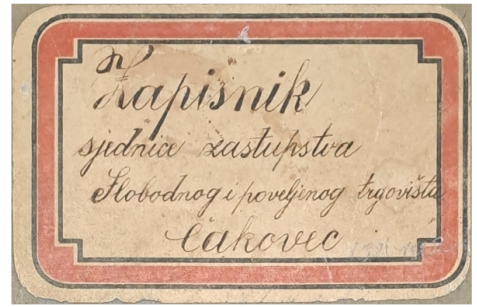 Zapisnik
sjednice zastupstva
Slobodnog i poveljenog trgovišta
Čakovec